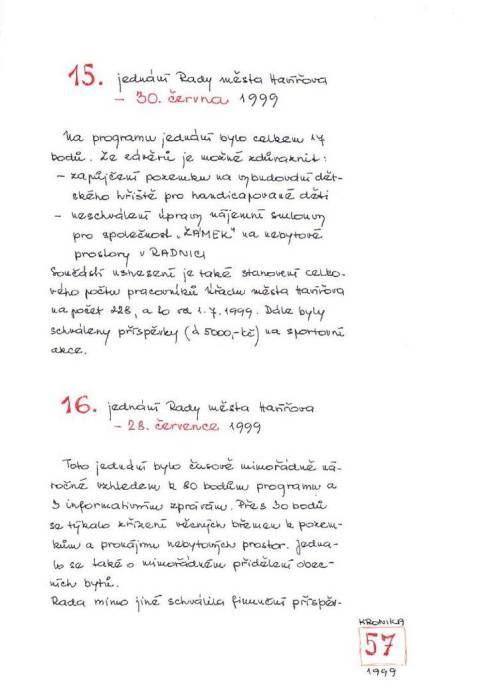 15. jednání Rady města Havířova
– 30. června 1999
Na programu jednání bylo celkem 17
bodů. Ze závěrů je možné zdůraknit:
– zapůjčení pozemku na vybudování dět-
ského hřiště pro handicapované děti
– neschválení úpravy nájemní smlouvy
pro společnost „ZÁMEK" na nebytové
prostory v RADNICI
Součástí usnesení je také stanovení celko-
vého počtu pracovníků Úřadu města Havířova
na počet 228, a to od 1.7.1999. Dále byly
schváleny příspěvky (á 5000,-Kč) na sportovní
akce.
16. jednání Rady města Havířova
– 28. července 1999
Toto jednání bylo časově mimořádně ná-
ročné vzhledem k 80 bodům programu a
3 informativním zprávám. Přes 30 bodů
se týkalo zřízení věcných břemen k pozem-
kům a pronájmu nebytových prostor. Jedna-
lo se také o mimořádném přidělení obec-
ních bytů.
Rada mimo jiné schválila finanční příspěv-
KRONIKA
57
1999